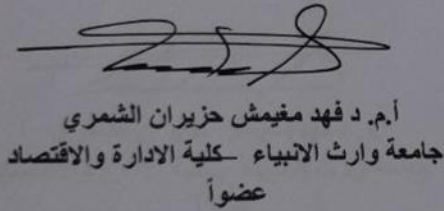 أ.م. د فهد مغيمش حزيران الشمري
جامعة وارث الانبياء –كلية الادارة والاقتصاد
عضواً